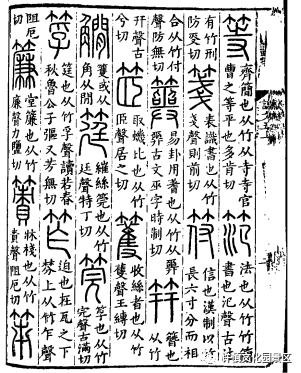 等 齊簡也从竹从寺寺官曹之等平也多肯切 笵 法也从竹竹簡書也氾聲古法
有竹刑防㚇切 箋 表識書也从竹戔聲則前切 符 信也漢制以竹長六寸分而相
合从竹付聲防無切 簭 易卦用蓍也从竹从𢍮𢍮古文巫字時制切 筓 簪也从竹
幵聲古兮切 𥬔 取蟣比也从竹𦣞聲居之切 籰 收絲者也从竹蒦聲王縛切
角从閒 筳 繀絲筦也从竹廷聲特丁切 筦 筟也从竹完聲古滿切
筟 筳也从竹孚聲讀若春秋魯公子彄又芳無切 笮 迫也在瓦之下棼上从竹乍聲
阻厄切 簾 堂簾也从竹廉聲力鹽切 簀 牀棧也从竹責聲阻厄切 笫
许慎文化园景区